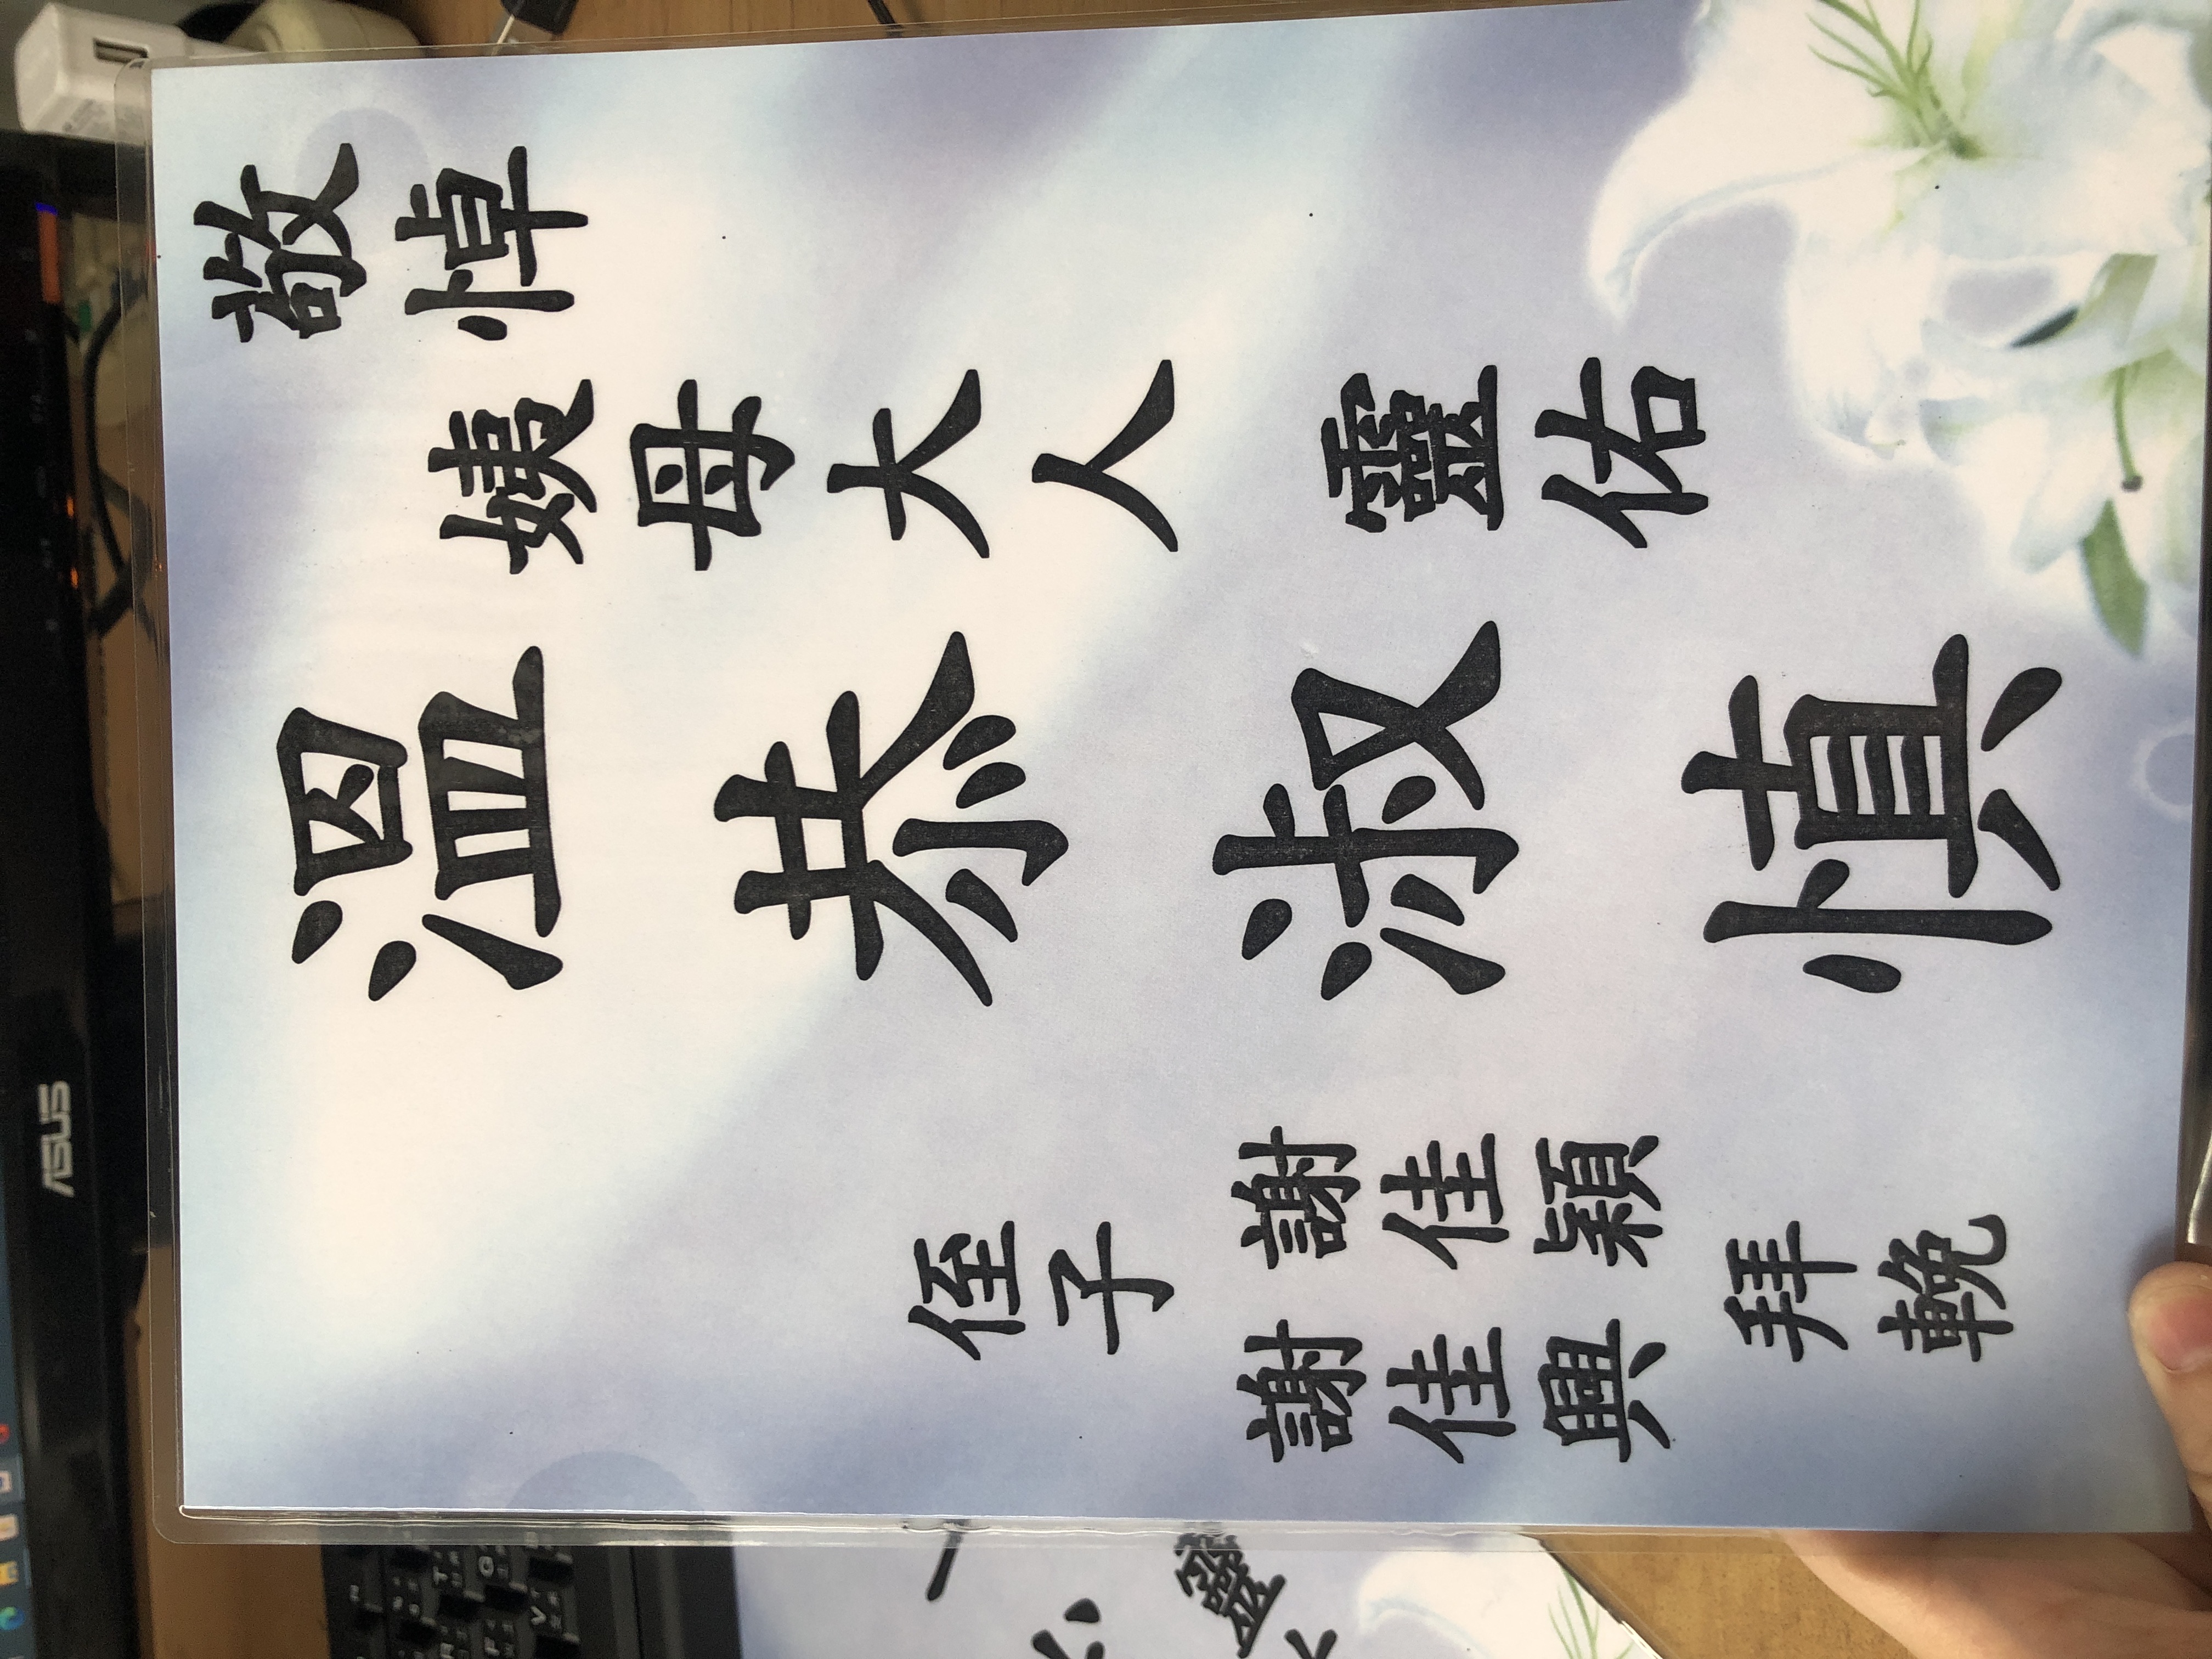 敬悼
母大人 靈佑
溫恭淑慎
侄子
謝佳穎
謝佳興
拜輓
ASUS
靈